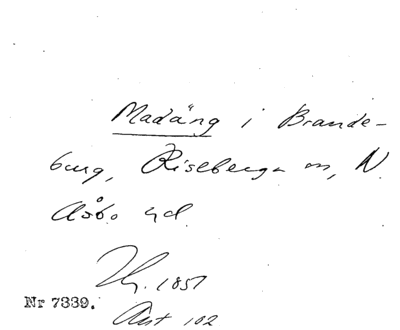 Madäng i Brande-
burg, Riseberga sn, N.
Åsbo hd.
1851
Nr 7339.
Akt 102